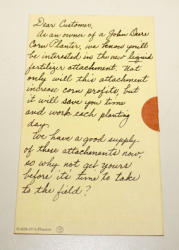 Dear Customer,
As an owner of a John Deere
Corn Planter, we know you'll
be interested in the new liquid
fertilizer attachment. Not
only will this attachment
increase corn profits, but
it will save you time
and work each planting
day.
We have a good supply
of these attachments now
so why not get yours
before it's time to take
to the field?